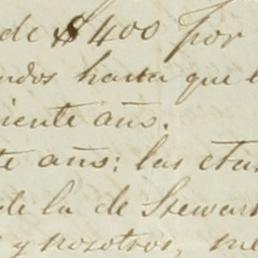 de $400 por
ndos hasta que l
iente año.
te año: las eta
de la de Stewar
y nosotros, me